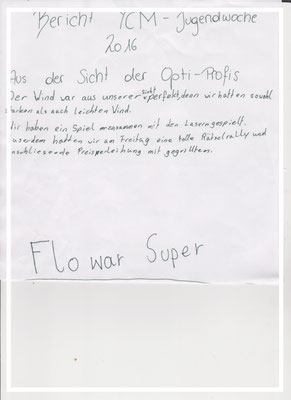 Bericht YCM - Jugendwoche
2016
Aus der Sicht der Opti-Profis
Der Wind war aus unserer Sicht perfekt, denn wir hatten sowohl
starken als auch leichten Wind.
Wir haben ein Spiel zusammen mit den Lasern gespielt.
Ausserdem hatten wir am Freitag eine tolle Rätselrally und
anschliesende Preisverleihung mit gegrilltem.
Flo war Super